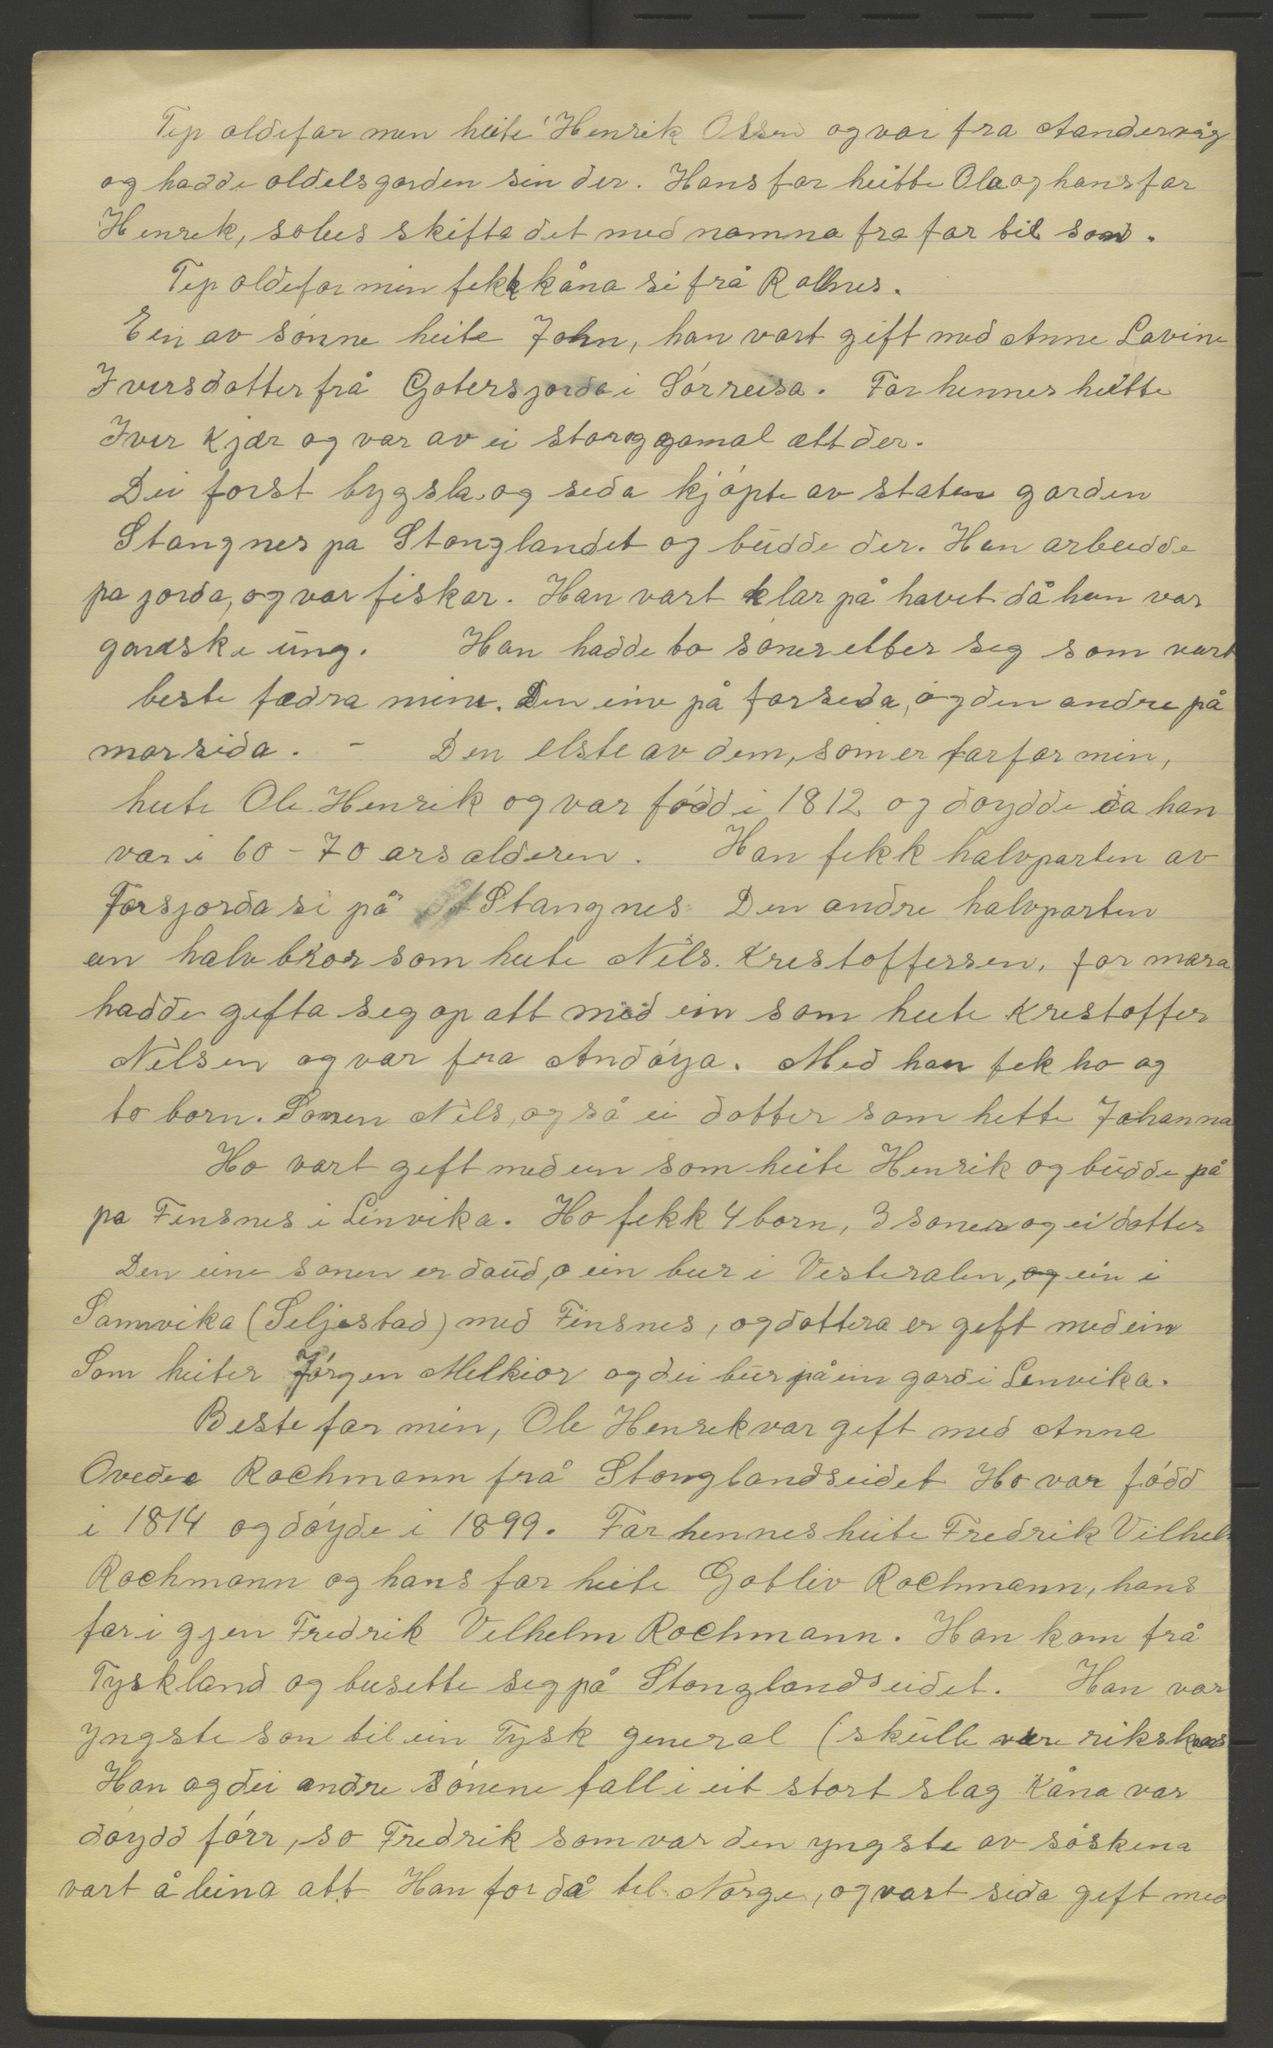 Tip oldefar min heite Henrik Olsen og var fra Aandervåg
og hadde oldelsgarden sin der. Hans far heitte Ola og hans far
Henrek, soleis skifta det med namna fra far til son.
Tip oldefar min fekk kåna si frå Rollnes.
Ein av sónne heite John, han vart gift med Anne Lovine
Iversdotter frå Gotersjorda i Sórreisa. Far hennes heitte
Iver Kjær og var av ei stor og gamal ætt der.
Dei forst bygsla og seda kjópte av staten garden
Stangnes pa Stonglandet og budde der. Han arbeidde
pa jorda, og var fiskar. Han vart klar på havet då han var
ganske ung. Han hadde to sóner etter seg som vart
beste fædra mine. Den eine på farseda, og den andre på
morsida. - Den elste av dem, som er farfar min,
heite Ole Henrik og var fódd i 1812 og doydde da han
var i 60-70 ars alderen. Han fekk halvparten av
Farsjorda si på Stangnes Den andre halvparten
en halv bror som heite Nils Krestoffersen, for mora
hadde gefta seg op att med ein som heite Krestoffer
Nilsen og var fra Andóya. Med han fek ho og
to born. Sonen Nils, og så ei dotter som hette Johanna
Ho vart geft med ein som heite Henrik og budde på
pa Finsnes i Lenvika. Ho fekk 4 born, 3 soner og ei dotter
Den eine sonen er daud, o ein bur i Vesteralen, og ein i
Samvika (Seljestad) med Finsnes, og dottera er geft med ein
Som heiter Jórgen Melkior og dei bur på ein gard i Lenvika.
Beste far min, Ole Henrek var geft med Anna
Ovedie Rochmann frå Stonglandseidet Ho var fódd
i 1814 og dóyde i 1899. Far hennes heite Fredrik Vilhelm
Rochmann og hans far heite Gotliv Rochmann, hans
far i gjen Fredrik Velhelm Rochmann. Han kom frå
Tyskland og busette seg på Stonglandseidet. Han var
yngste son til ein Tysk general (skulle vere
Han og dei andre sónene fall i eit stort slag Kåna var
dóydd fórr, so Fredrik som var den yngste av sóskena
vart å leina att Han for då tel Norge, og vart sida geft med